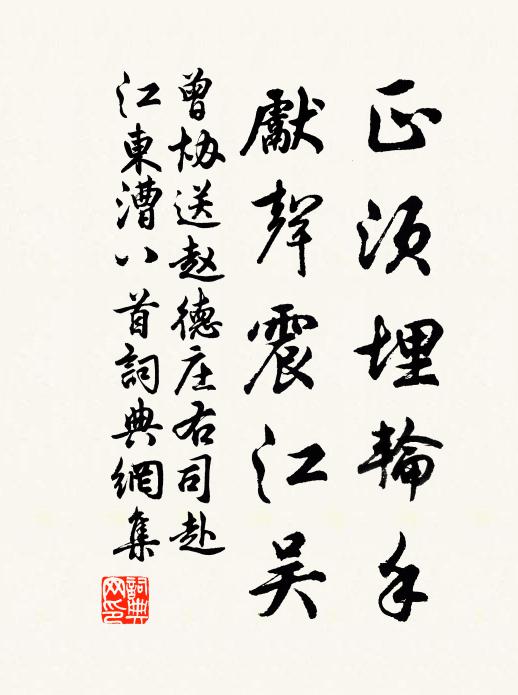 正須埋輪手
獻聲震江吴
曾协送赵德庄右司赴
江東漕八首詞典網集
詞典網印